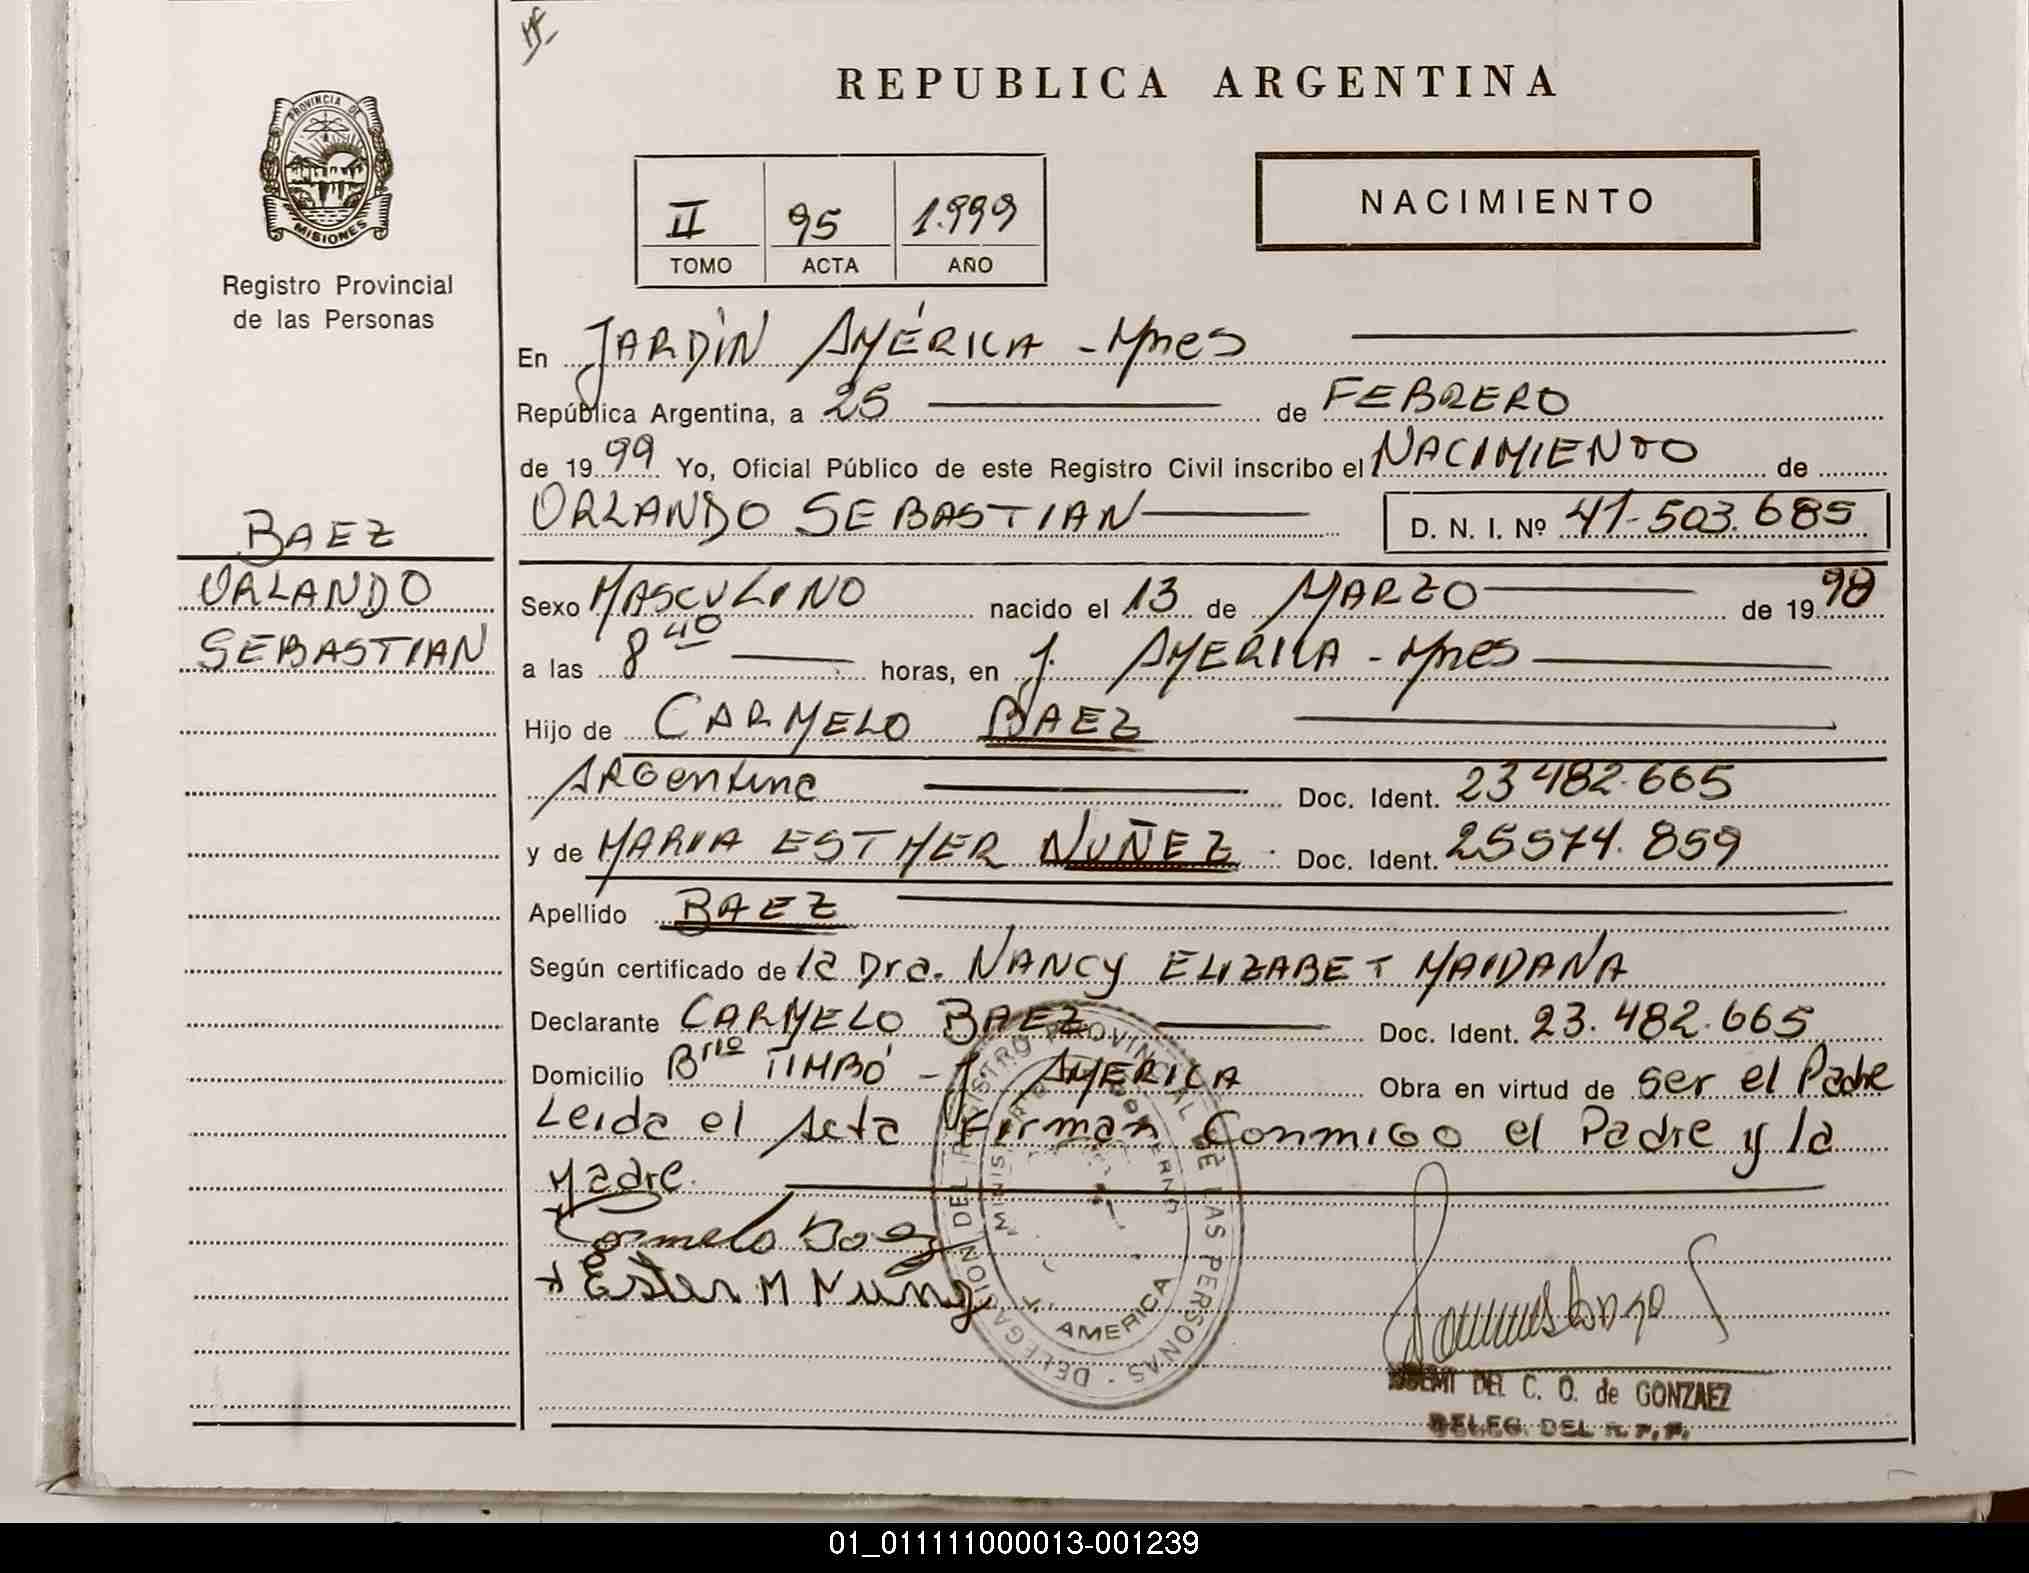 REPUBLICA ARGENTINA
PROVINCIA DE
MISIONES
Registro Provincial
de las Personas
II 95 1.999
TOMO ACTA AÑO
NACIMIENTO
En JARDÍN AMÉRICA - Mnes
República Argentina, a 25 de FEBRERO
de 1999 Yo, Oficial Público de este Registro Civil inscribo el NACIMIENTO de
ORLANDO SEBASTIAN D. N. I. Nº 41.503.685
BAEZ
ORLANDO
SEBASTIAN
Sexo MASCULINO nacido el 13 de MARZO de 1998
a las 8 40 horas, en J. AMÉRICA - Mnes
Hijo de CARMELO BAEZ
Argentino Doc. Ident. 23 482.665
y de MARIA ESTHER NUÑEZ Doc. Ident. 25574.859
Apellido BAEZ
Según certificado de la Dra. NANCY ELIZABET MAIDANA
Declarante CARMELO BAEZ Doc. Ident. 23.482.665
Domicilio Brio TIMBÓ - J. AMERICA Obra en virtud de ser el Padre
Leida el Acta Firman Conmigo el Padre y la
Madre.
Carmelo Baez
Ester M Nuñez
DELEGACION DEL REGISTRO PROVINCIAL DE LAS PERSONAS
MINISTERIO GOBIERNO
J. AMERICA
DEL C. O. de GONZAEZ
DELEG. DEL R. P. P.
01_011111000013-001239